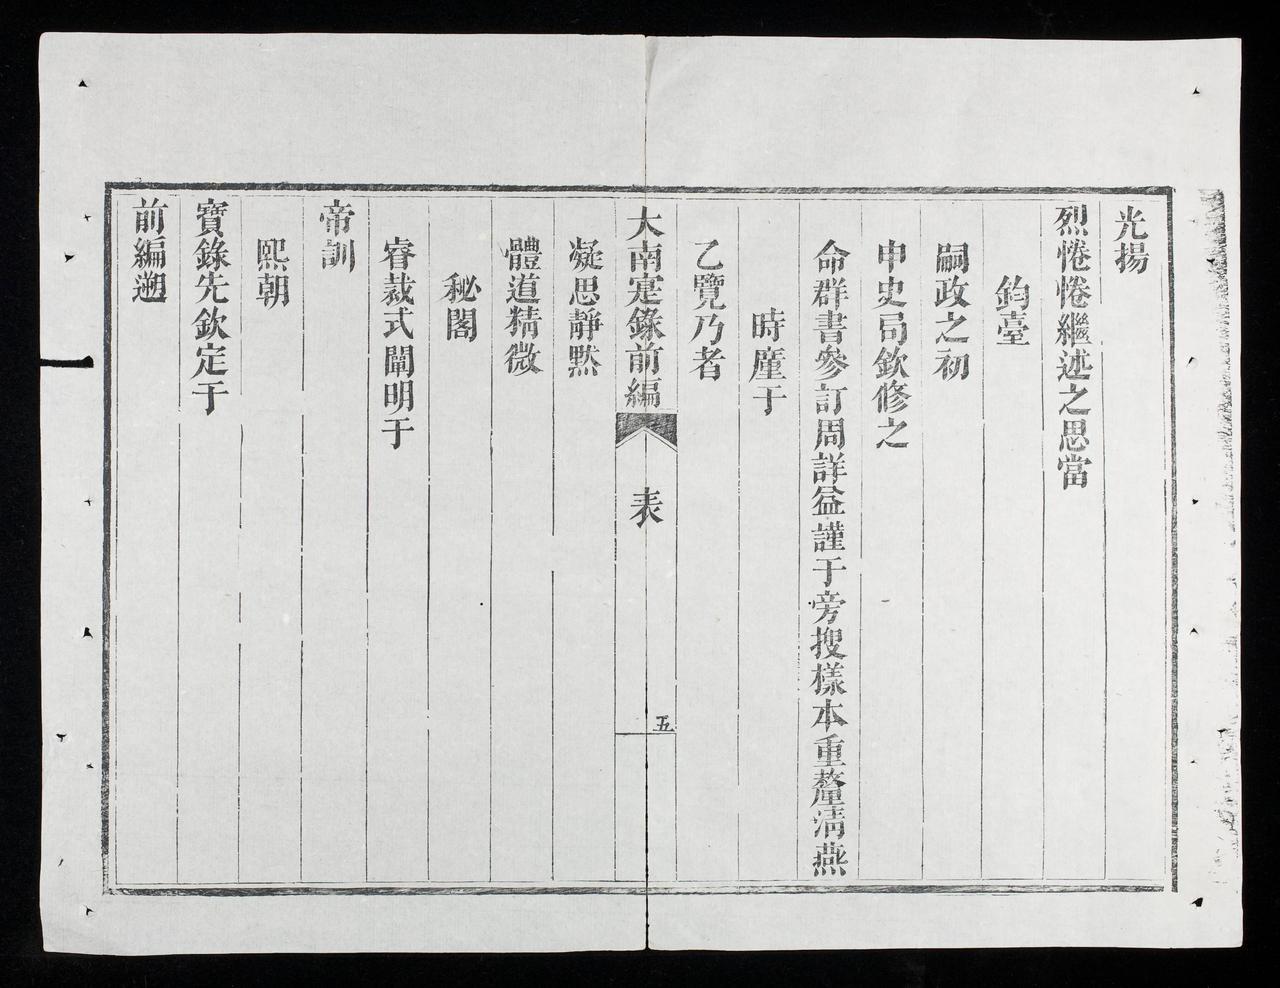 光揚
烈惓惓繼述之思當
鈞臺
嗣政之初
申史局欽修之
命群書參訂周詳益謹于旁搜樣本重釐清燕
時廑于
乙覽乃者
大南寔錄前編 表 五
凝思靜黙
體道精微
秘閣
睿裁式闡明于
帝訓
熙朝
寶錄先欽定于
前編遡